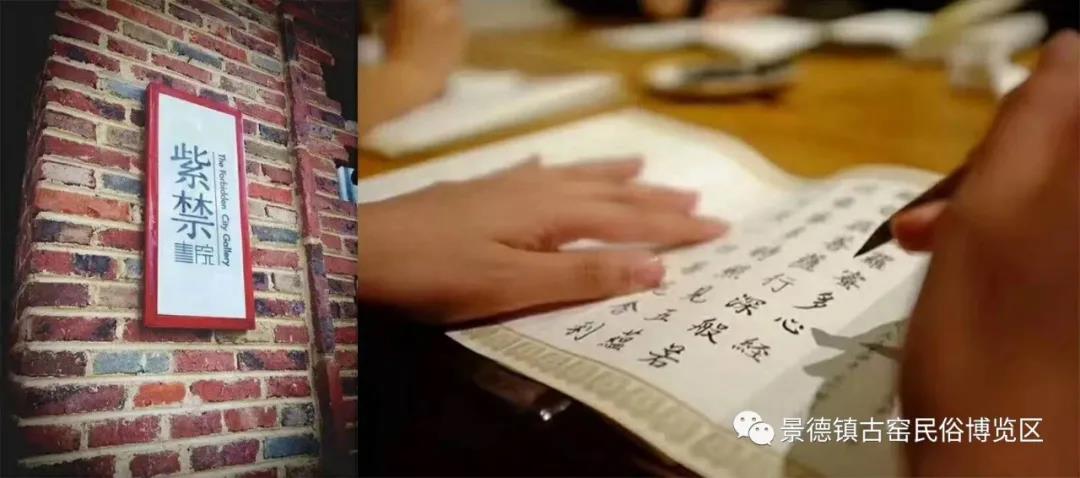 紫禁
書院
The Forbidden City Gallery
羅蜜多心經
菩薩行深般若
時照見五蘊
舍利
景德镇古窑民俗博览区